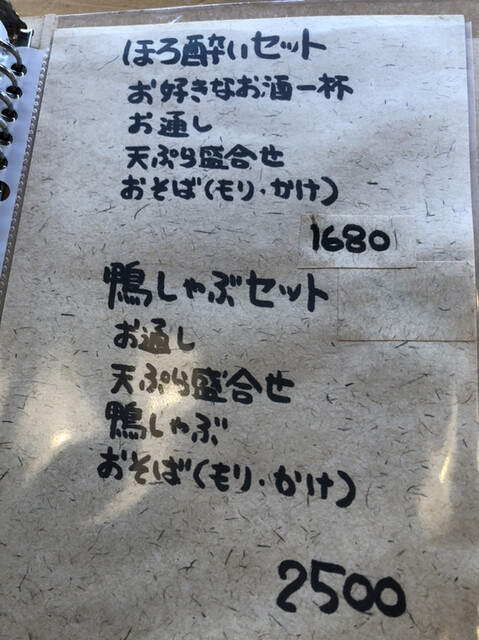 ほろ酔いセット
お好きなお酒一杯
お通し
天ぷら盛合せ
おそば(もり・かけ)
1680
鴨しゃぶセット
お通し
天ぷら盛合せ
鴨しゃぶ
おそば(もり・かけ)
2500